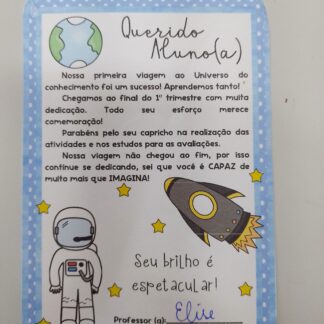 Querido
Aluno(a)
Nossa primeira viagem ao Universo do
conhecimento foi um sucesso! Aprendemos tanto!
Chegamos ao final do 1º trimestre com muita
dedicação. Todo seu esforço merece
comemoração!
Parabéns pelo seu capricho na realização das
atividades e nos estudos para as avaliações.
Nossa viagem não chegou ao fim, por isso
continue se dedicando, sei que você é CAPAZ de
muito mais que IMAGINA!
Seu brilho é
espetacular!
Professor (a): Elise